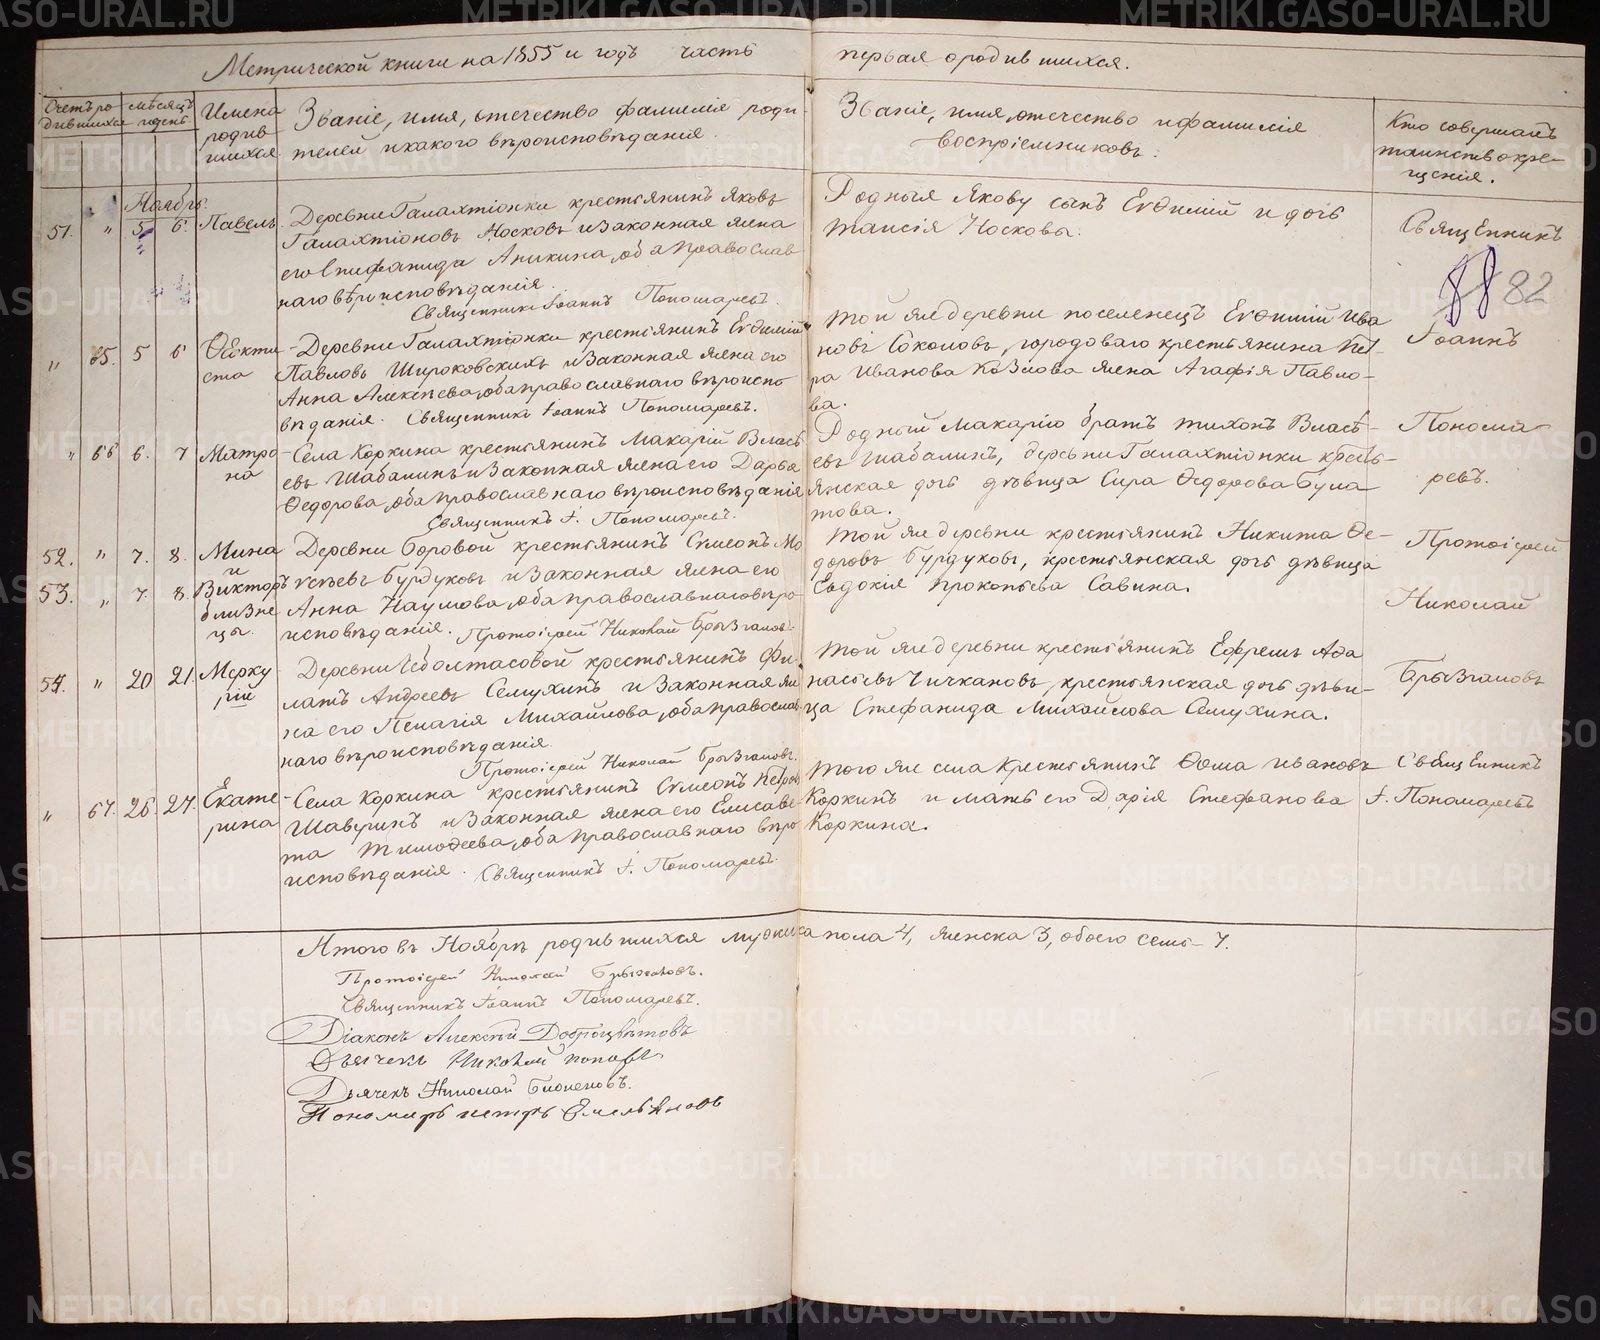 Метрической книги на 1855 й годъ часть первая о родившихся.
Счетъ родившихся
мѣсяцъ и день
Имена родившихся
Званіе, имя, отчество фамилія родителей и какого вѣроисповѣданія.
Званіе, имя, отчество и фамилія воспріемниковъ.
Кто совершалъ таинство крещенія.
Ноябрь.
51. " 5 6. Павелъ
Деревни Галахтіонки крестьянинъ Яковъ
Галахтіоновъ Носковъ и законная жена
его Епифанида Аникина, оба православ
наго вѣроисповѣданія.
Священникъ Іоаннъ Пономаревъ.
Родныя Якову сынъ Евдимій и дочь
Таисія Носковы.
Священникъ
82
" 65. 5 6 Ѳеокти
ста
Деревни Галахтіонки крестьянинъ Евдимій
Павловъ Широковскихъ и законная жена его
Анна Алексѣева, оба православнаго вѣроиспо
вѣданія. Священникъ Іоаннъ Пономаревъ.
Той же деревни поселенецъ Евдимій Ива
новъ Соколовъ, городоваго крестьянина Пет-
ра Иванова Козлова жена Агафія Павло-
ва.
Іоаннъ
" 66 6. 7 Матро
на
Села Коркина крестьянинъ Макарій Власъ
евъ Шабалинъ и законная жена его Дарья
Ѳедорова, оба православнаго вѣроисповѣданія
Священникъ І. Пономаревъ.
Родный Макарію братъ Тихонъ Власъ-
евъ Шабалинъ, деревни Галахтіонки кресть-
янская дочь дѣвица Сира Ѳедорова Була
това.
Понома-
ревъ.
52. " 7. 8. Мина
и
53. " 7. 8. Викторъ
близне
цы.
Деревни Боровой крестьянинъ Симеонъ Мо
исѣевъ Бурдуковъ и законная жена его
Анна Наумова, оба православнаго вѣро
исповѣданія. Протоіерей Николай Брызгаловъ.
Той же деревни крестьянинъ Никита Ѳе-
доровъ Бурдуковъ, крестьянская дочь дѣвица
Евдокія Прокопьева Савина.
Протоіерей
Николай
54. " 20 21. Мерку
рій
Деревни Чеболтасовой крестьянинъ Фи
латъ Андреевъ Семухинъ и законная же
на его Пелагія Михайлова, оба православ
наго вѣроисповѣданія.
Протоіерей Николай Брызгаловъ.
Той же деревни крестьянинъ Ефремъ Афа
насьевъ Чичкановъ, крестьянская дочь дѣви-
ца Стефанида Михайлова Семухина.
Брызгаловъ
" 67. 26. 27. Екате
рина
Села Коркина крестьянинъ Симеонъ Петров
Шавринъ и законная жена его Елисаве
та Тимоѳеева, оба православнаго вѣро
исповѣданія. Священникъ І. Пономаревъ.
Того же села крестьянинъ Ѳома Ивановъ
Коркинъ и мать его Дарія Стефанова
Коркина.
Священникъ
І. Пономаревъ
Итого въ Ноябрѣ родившихся мужска пола 4, женска 3, обоего семь 7.
Протоіерей Николай Брызгаловъ.
Священникъ Іоаннъ Пономаревъ.
Діаконъ Алексѣй Доброцвѣтовъ
Дьячекъ Николай Поповъ
Дьячекъ Николай
Пономарь Петръ Емельяновъ
METRIKI.GASO-URAL.RU